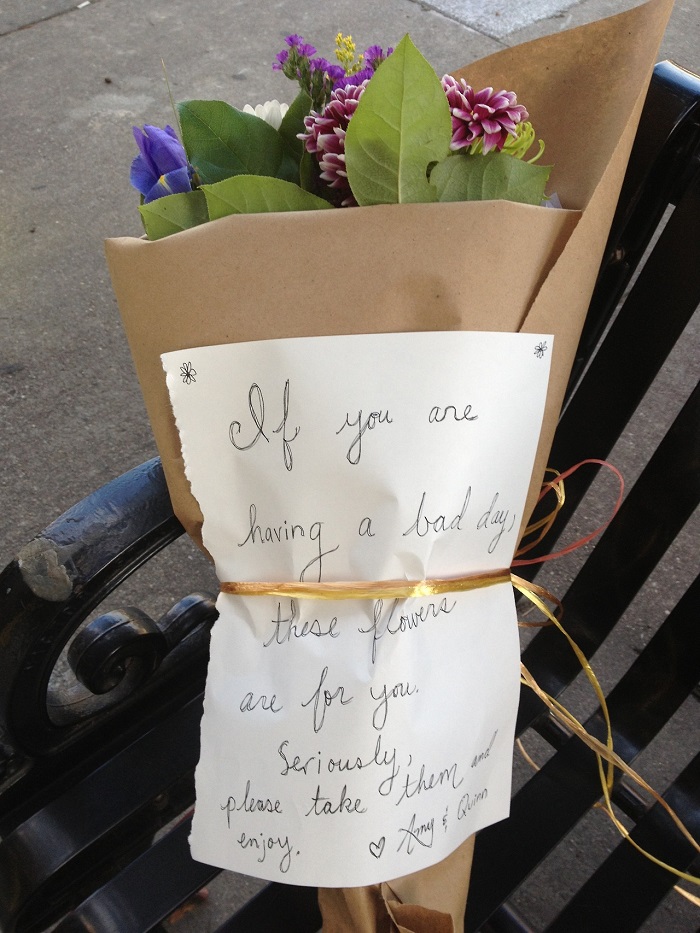 If you are
having a bad day,
these flowers
are for you.
Seriously,
please take them and
enjoy. ♡ Amy & Quinn